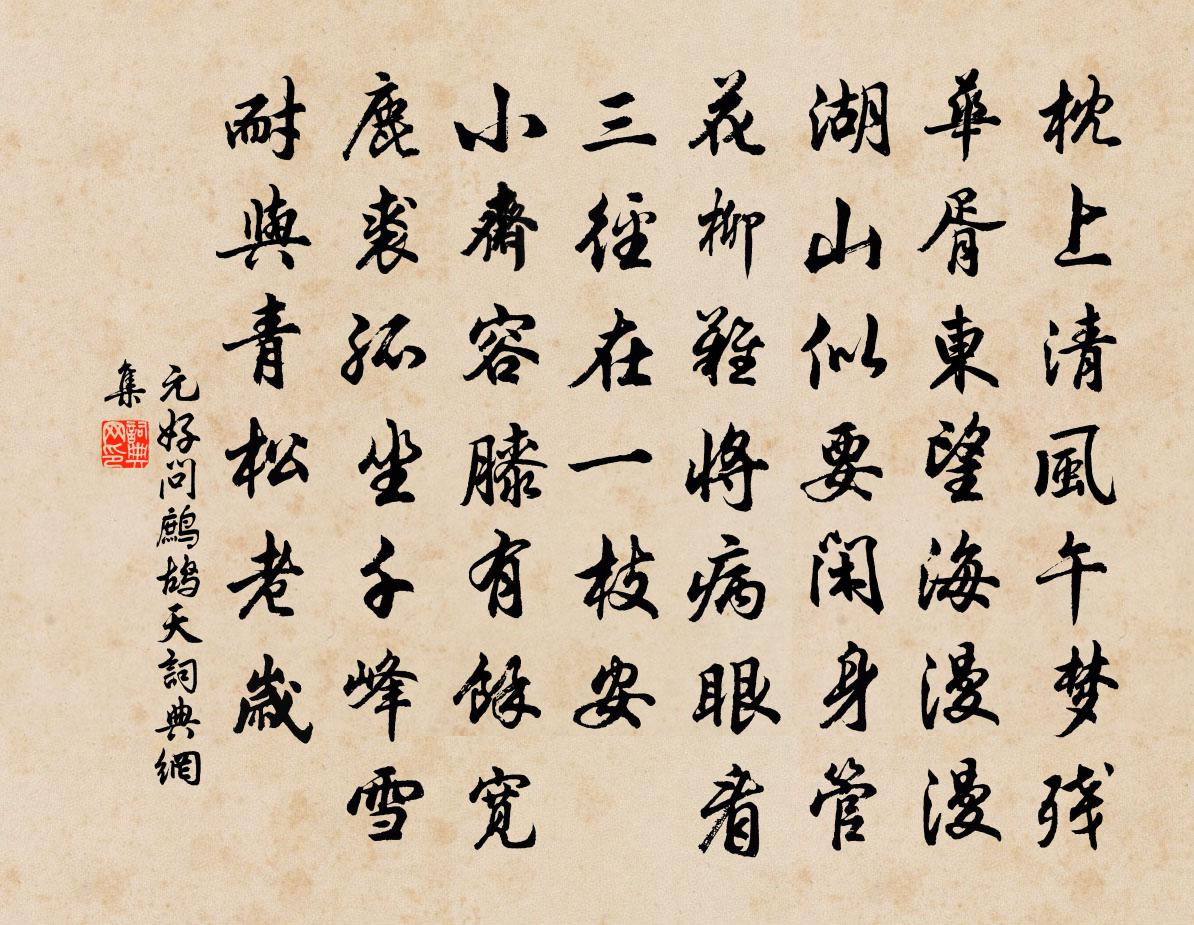 枕上清風午梦残
華胥東望海漫漫
湖山似要閑身管
花柳難將病眼看
三徑在一枝安
小齋容膝有餘寛
鹿裘孤坐千峰雪
耐與青松老歲
元好问鷓鴣天詞典網
集
詞典
网印